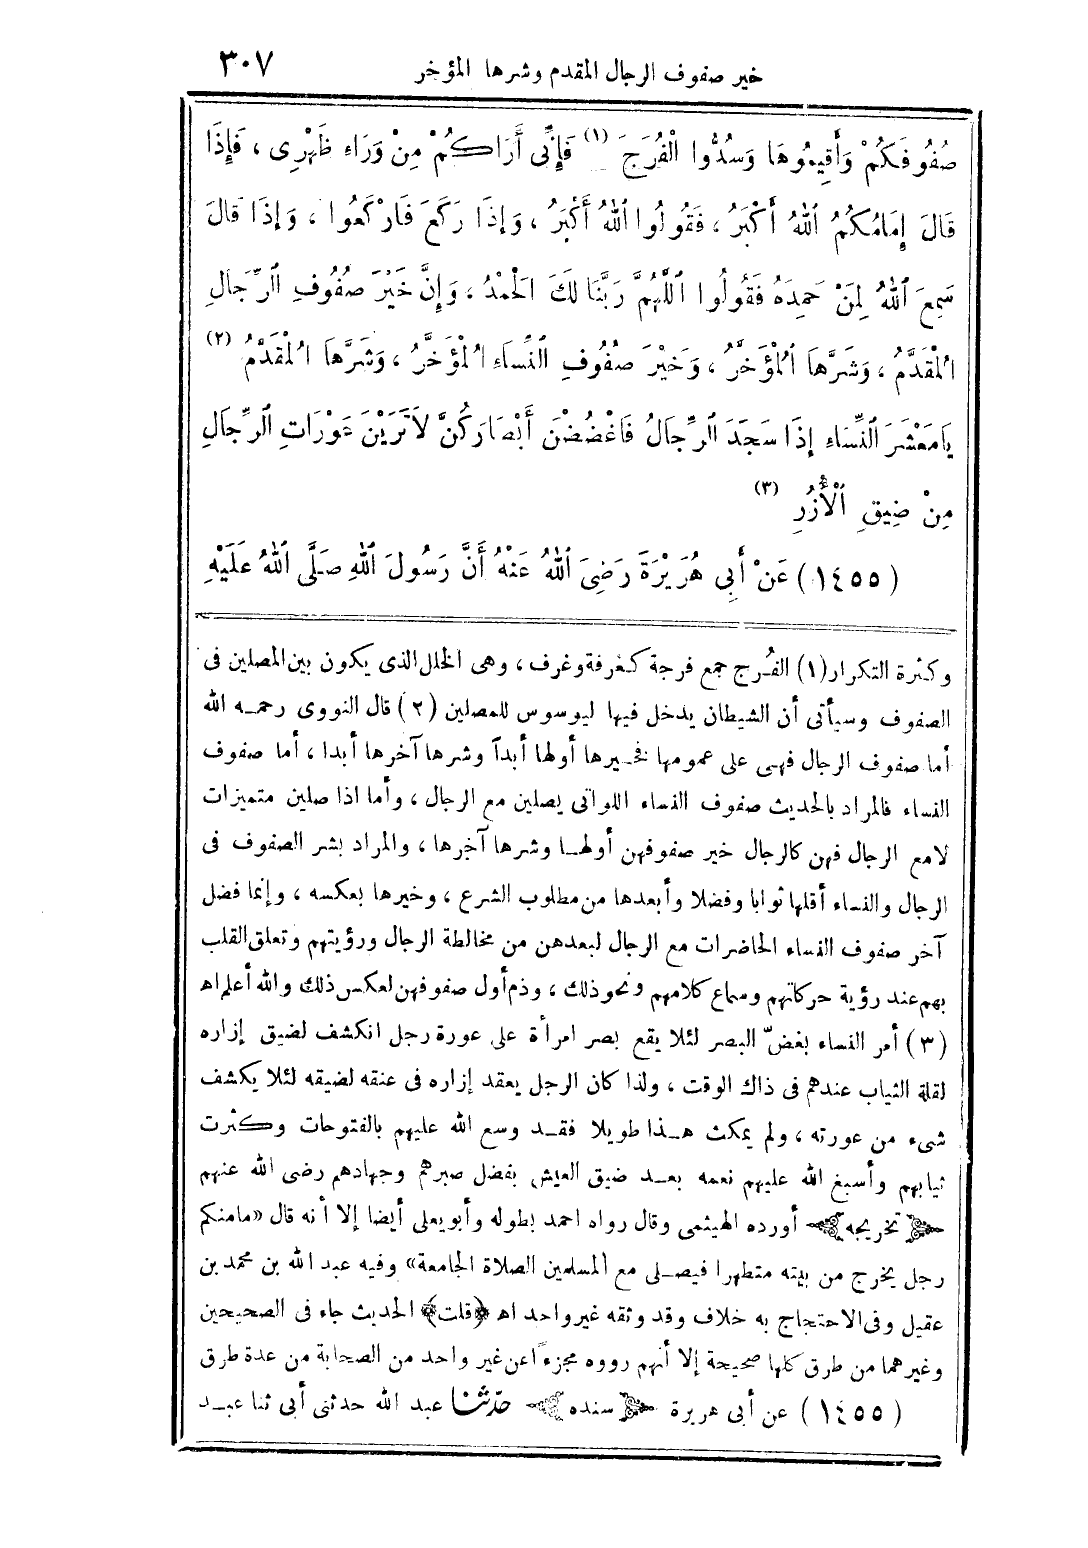 خير صفوف الرجال المقدم وشرها المؤخر ٣٠٧
صُفُوفَكُمْ وَأَقِيمُوهَا وَسُدُّوا الْفُرَجَ (١) فَإِنِّى أَرَاكُمْ مِنْ وَرَاءِ ظَهْرِى ، فَإِذَا
قَالَ إِمَامُكُمُ اللهُ أَكْبَرُ ، فَقُولُوا اللهُ أَكْبَرُ ، وَإِذَا رَكَعَ فَارْكَعُوا ، وَإِذَا قَالَ
سَمِعَ اللهُ لِمَنْ حَمِدَهُ فَقُولُوا اللَّهُمَّ رَبَّنَا لَكَ الْحَمْدُ ، وَإِنَّ خَيْرَ صُفُوفِ الرِّجَالِ
الْمُقَدَّمُ ، وَشَرَّهَا الْمُؤَخَّرُ ، وَخَيْرَ صُفُوفِ النِّسَاءِ الْمُؤَخَّرُ ، وَشَرَّهَا الْمُقَدَّمُ (٢)
يَامَعْشَرَ النِّسَاءِ إِذَا سَجَدَ الرِّجَالُ فَاغْضُضْنَ أَبْصَارَكُنَّ لَاتَرَيْنَ عَوْرَاتِ الرِّجَالِ
مِنْ ضِيقِ الْأُزُرِ (٣)
(١٤٥٥) عَنْ أَبِى هُرَيْرَةَ رَضِىَ اللهُ عَنْهُ أَنَّ رَسُولَ اللهِ صَلَّى اللهُ عَلَيْهِ
وكثرة التكرار (١) الفُرج جمع فرجة كغرفة وغرف ، وهى الخلل الذى يكون بين المصلين فى
الصفوف وسيأتى أن الشيطان يدخل فيها ليوسوس للمصلين (٢) قال النووى رحمه الله
أما صفوف الرجال فهى على عمومها فخيرها أولها أبداً وشرها آخرها أبدا ، أما صفوف
النساء فالمراد بالحديث صفوف النساء اللواتى يصلين مع الرجال ، وأما اذا صلين متميزات
لامع الرجال فهن كالرجال خير صفوفهن أولها وشرها آخرها ، والمراد بشر الصفوف فى
الرجال والنساء أقلها ثوابا وفضلا وأبعدها من مطلوب الشرع ، وخيرها بعكسه ، وإنما فضل
آخر صفوف النساء الحاضرات مع الرجال لبعدهن من مخالطة الرجال ورؤيتهم وتعلق القلب
بهم عند رؤية حركاتهم وسماع كلامهم ونحو ذلك ، وذم أول صفوفهن لعكس ذلك والله أعلم اه
(٣) أمر النساء بغضّ البصر لئلا يقع بصر امرأة على عورة رجل انكشف لضيق إزاره
لقلة الثياب عندهم فى ذاك الوقت ، ولذا كان الرجل يعقد إزاره فى عنقه لضيقه لئلا يكشف
شىء من عورته ، ولم يمكث هذا طويلا فقد وسع الله عليهم بالفتوحات وكثرت
ثيابهم وأسبغ الله عليهم نعمه بعد ضيق العيش بفضل صبرهم وجهادهم رضى الله عنهم
﴿تخريجه﴾ أورده الهيثمى وقال رواه احمد بطوله وأبويعلى أيضا إلا أنه قال «مامنكم
رجل يخرج من بيته متطهرا فيصلى مع المسلمين الصلاة الجامعة» وفيه عبد الله بن محمد بن
عقيل وفى الاحتجاج به خلاف وقد وثقه غير واحد اه ﴿قلت﴾ الحديث جاء فى الصحيحين
وغيرهما من طرق كلها صحيحة إلا أنهم رووه مجزءًا عن غير واحد من الصحابة من عدة طرق
(١٤٥٥) عن أبى هريرة ﴿سنده﴾ حدّثنا عبد الله حدثنى أبى ثنا عبد